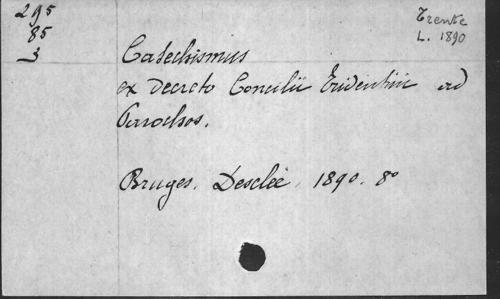 295
85
3
Trente
L. 1890
Catechismus
ex Decreto Concilii Tridentini ad
Parochos.
Bruges. Desclée. 1890. 8°